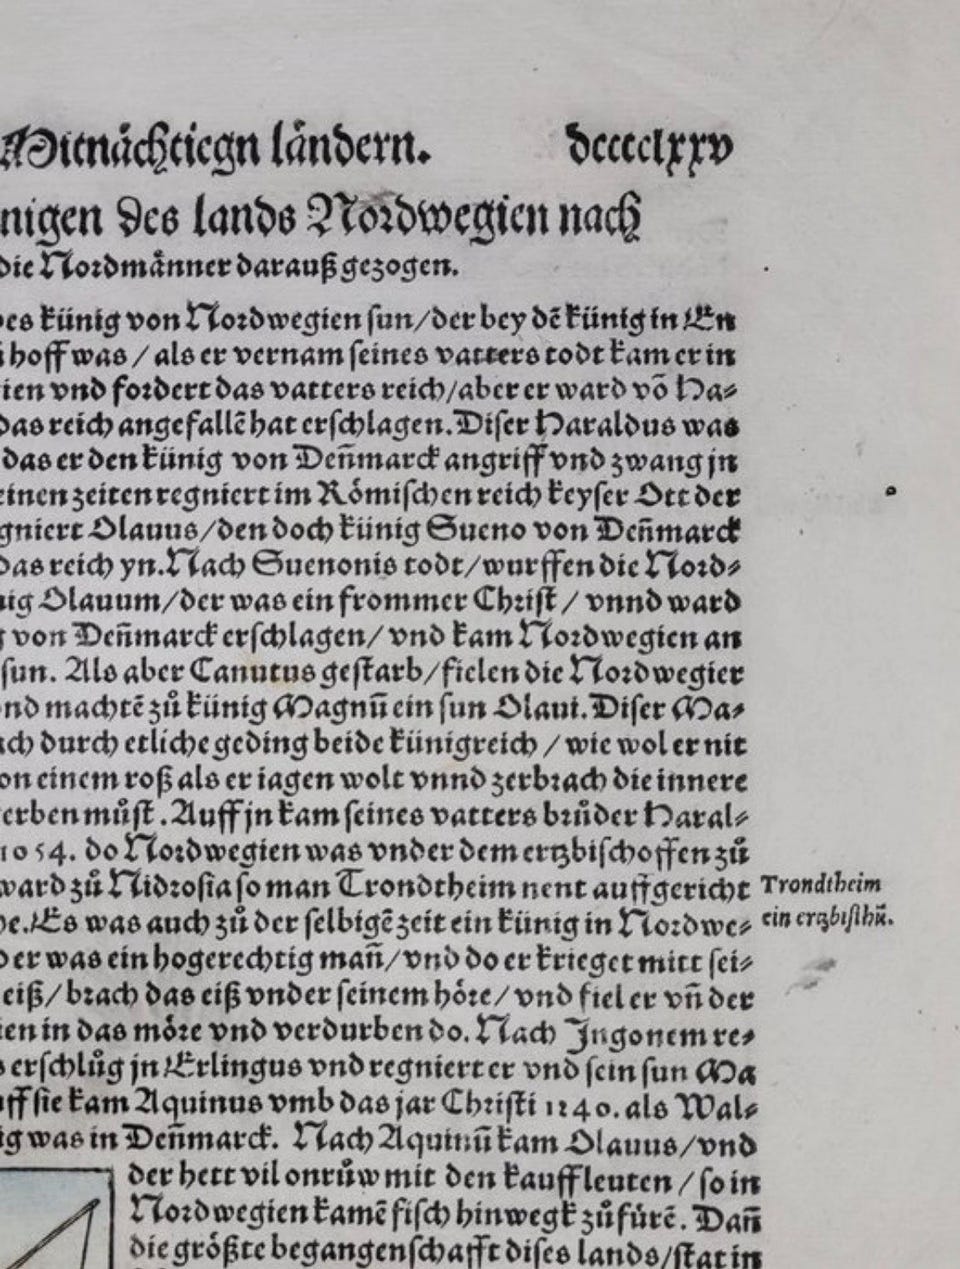 Mitnächtiegn ländern. dcccclxxv
nigen des lands Nordwegien nach
die Nordmånner darauß gezogen.
künig von Nordwegien sun/der bey dẽ künig in En
hoff was / als er vernam seines vatters todt kam er in
ien vnd fordert das vatters reich/aber er ward võ Ha⸗
das reich angefallẽ hat erschlagen. Diser Haraldus was
das er den künig von Deñmarck angriff vnd zwang jn
einen zeiten regniert im Rômischen reich keyser Ott der
gniert Olauus/den doch künig Sueno von Deñmarck
das reich yn. Nach Suenonis todt/wurffen die Nord⸗
nig Olauum/der was ein frommer Christ / vnnd ward
von Deñmarck erschlagen/ vnd kam Nordwegien an
sun. Als aber Canutus gestarb/fielen die Nordwegier
nd machtẽ zů künig Magnũ ein sun Olaui. Diser Ma⸗
ch durch etliche geding beide künigreich / wie wol er nit
on einem roß als er iagen wolt vnnd zerbrach die innere
erben můst. Auff jn kam seines vatters brůder Haral⸗
1054. do Nordwegien was vnder dem ertzbischoffen zů
ward zů Nidrosia so man Trondtheim nent auffgericht
e. Es was auch zů der selbigẽ zeit ein künig in Nordwe⸗
der was ein hogerechtig mañ/vnd do er krieget mitt sei⸗
eiß/brach das eiß vnder seinem hôre/vnd fiel er vñ der
ien in das môre vnd verdurben do. Nach Ingonem re⸗
erschlůg jn Erlingus vnd regniert er vnd sein sun Ma
uff sie kam Aquinus vmb das jar Christi 1240. als Wal⸗
ig was in Deñmarck. Nach Aquinũ kam Olauus/vnd
der hett vil onrůw mit den kauffleuten / so in
Nordwegien kamẽ fisch hinwegk zůfürẽ. Dañ
die grôßte begangenschafft dises lands/stat in
Trondtheim
ein ertzbisthũ.